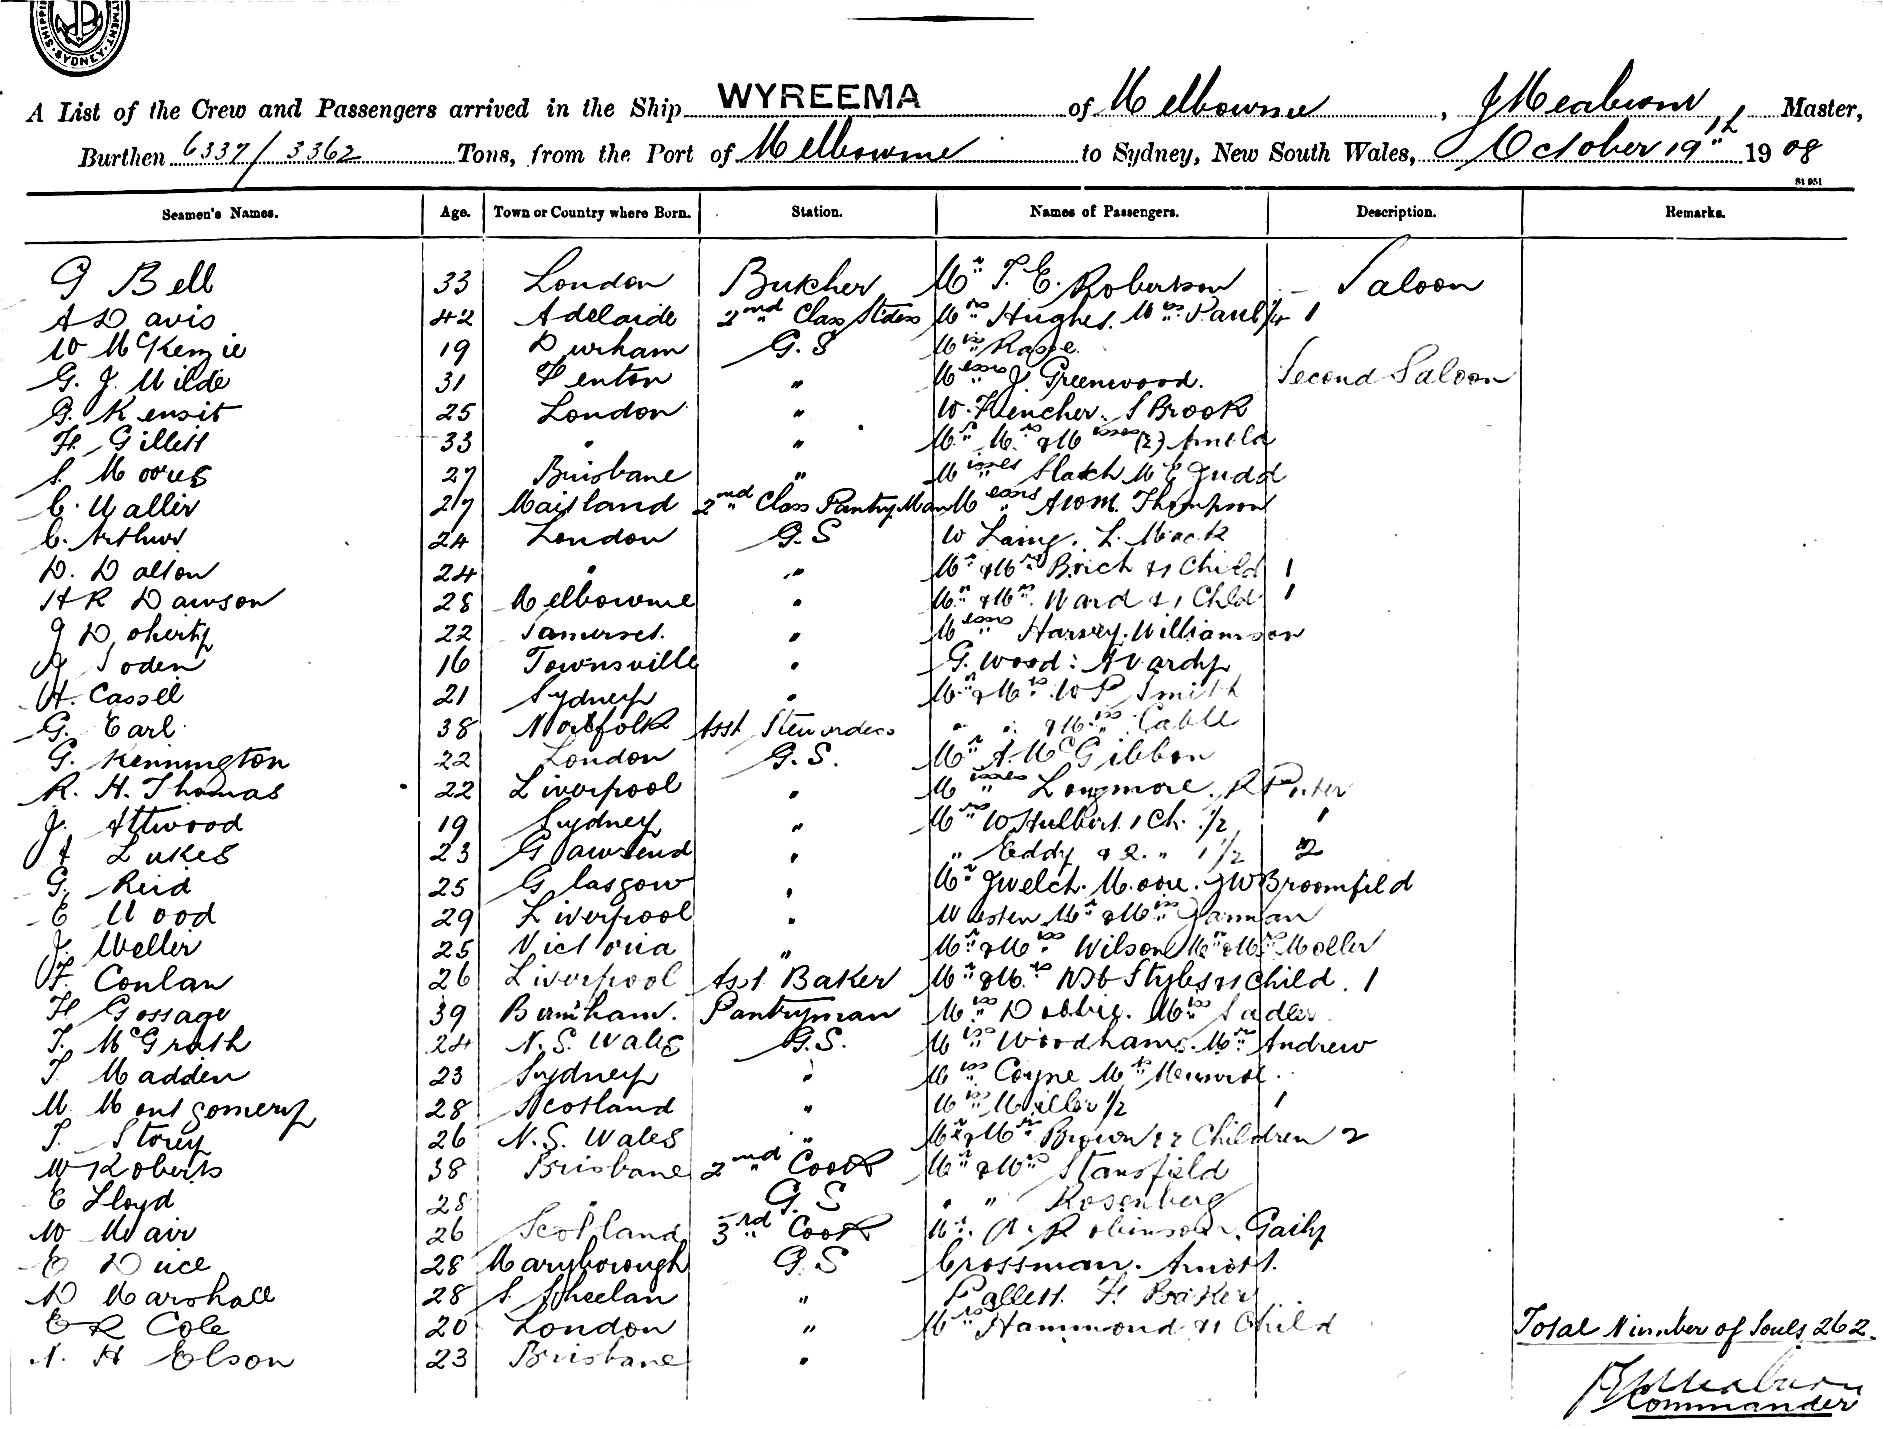 SHIPPI TMENT. SYDNEY
A List of the Crew and Passengers arrived in the Ship WYREEMA of Melbourne, J Meaburn Master,
Burthen 6337/3362 Tons, from the Port of Melbourne to Sydney, New South Wales, October 19th 1908
St 951
Seamen's Names. Age. Town or Country where Born. Station. Names of Passengers. Description. Remarks.
G Bell 33 London Butcher Mr T. E. Robertson Saloon
A Davis 42 Adelaide 2nd Class Stdess Mrs Hughes. Miss Paul 1
W McKenzie 19 Durham G.S Miss
G. J. Wilde 31 Fenton " Messrs J. Greenwood. Second Saloon
G. Kensit 25 London " W. S Brook
H Gillett 33 " " Mr Mrs & Misses (2) Arnold
S. Moores 27 Brisbane " Misses M E Judd
C. Waller 27 Maitland 2nd Class PantryMan Messrs Thompson
C. Arthur 24 London G.S W Laing. L. Mack
D. Dalton 24 " " Mr & Mrs Brich & 1 Child 1
H R Dawson 28 Melbourne " Mr & Mrs. Ward & 1 Chld 1
J Doherty 22 Somerset. " Messrs Harvey. Williamson
Soden 16 Townsville " G. Wood: A Vardy
H. Cassell 21 Sydney " Mr & Mrs W P Smith
G. Earl 38 Norfolk Asst Stewardess " " & Miss Cable
G. Kennington 22 London G.S. Mr A. McGibbon
R. H. Thomas 22 Liverpool " Misses Longmore. R Porter
J. Attwood 19 Sydney " Mrs W Hulbert 1 Ch. 1/2 1
A Lukes 23 Gravesend " " Eddy & 2. " 1 1/2 2
G. Reid 25 Glasgow " Mr J Welch. Moore. J W Broomfield
E Wood 29 Liverpool " Westen Mr & Miss Jarman
J. Weller 25 Victoria " Mr & Miss Wilson Mr & Mrs Moller
F. Conlan 26 Liverpool Asst Baker Mr & Mrs Styles & 1 Child. 1
H Gossage 39 Birmiham. Pantryman Miss Dobbie. Miss Sadler
T. McGrath 24 N.S. Wales G.S. Miss Woodhams. Mr Andrew
T Madden 23 Sydney " Miss Coyne Mr
M Montgomery 28 Scotland " Miss Miller 1/2 1
T. Storey 26 N.S. Wales " Mr & Mrs Brown & 2 Children 2
W Roberts 38 Brisbane 2nd Cook Mr & Mrs Stansfield
E Lloyd 28 " G.S " " Rosenberg
W Mair 26 Scotland 3rd Cook Mr. A. Robinson. Gaily
E Duce 28 Maryborough G.S Crossman. Amott.
D Marshall 28 S Shields " Pallett. H Baker
E R Cole 20 London " Mrs Hammond & 1 Child
N. H Elson 23 Brisbane "
Total Number of Souls 262.
Meaburn
Commander